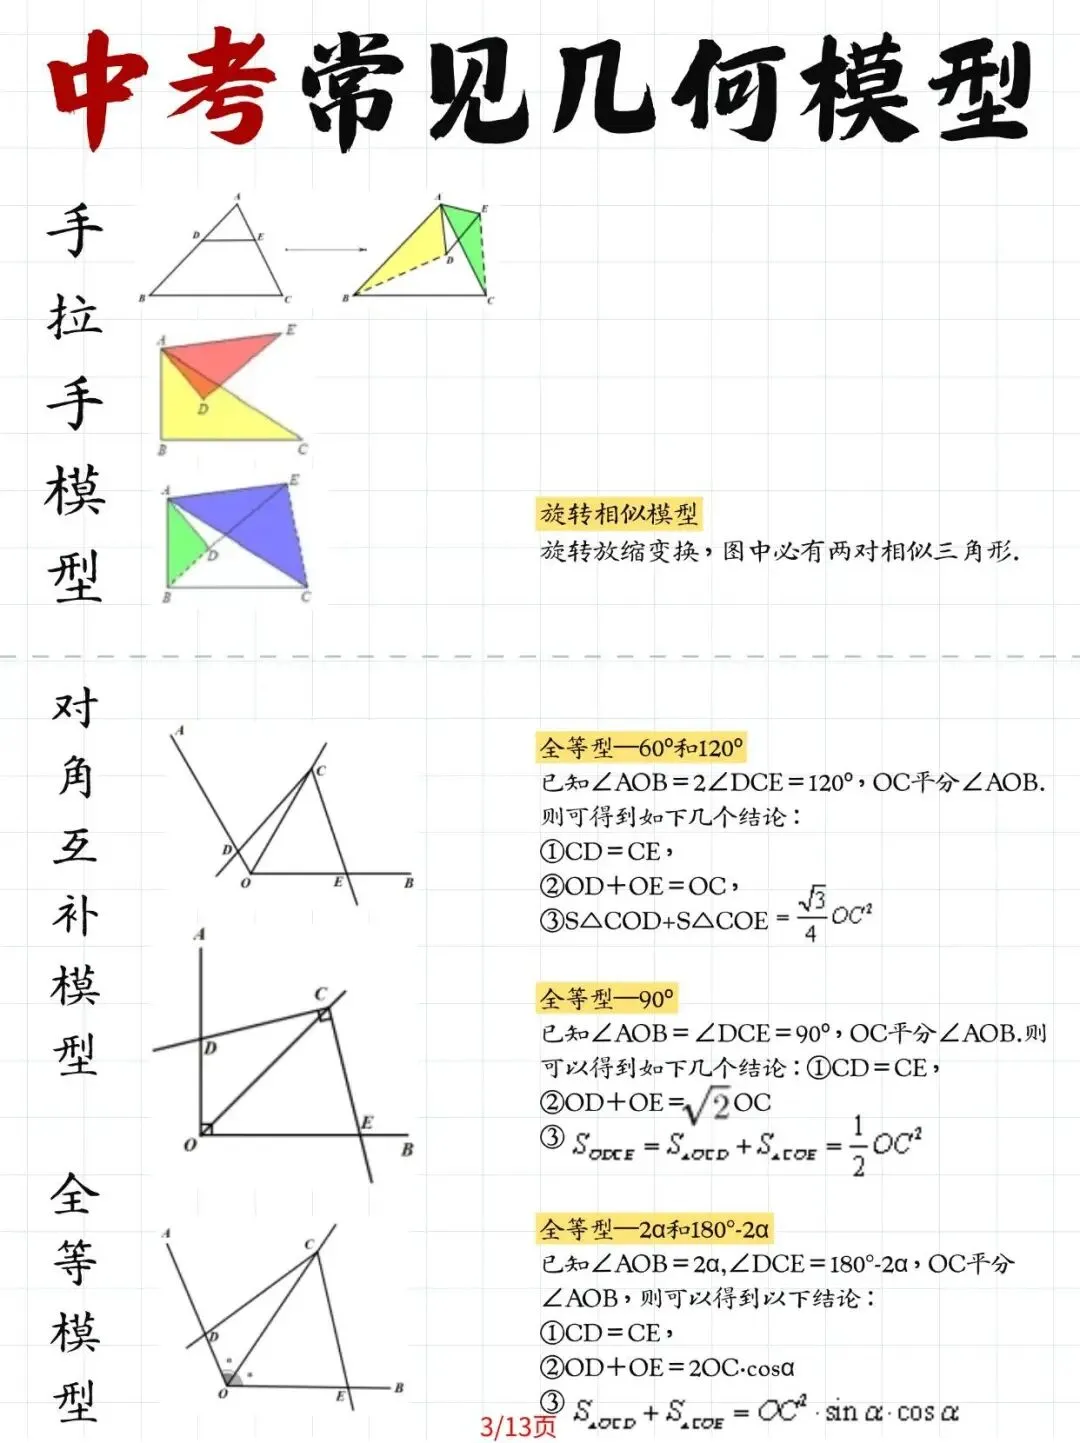 中考常见几何模型
手拉手模型
A
D
E
B
C
A
E
D
B
C
A
E
D
B
C
A
E
D
B
C
旋转相似模型
旋转放缩变换，图中必有两对相似三角形.
对角互补模型
全等模型
A
C
D
O
E
B
全等型—60º和120º
已知∠AOB＝2∠DCE＝120º，OC平分∠AOB.
则可得到如下几个结论：
①CD＝CE，
②OD＋OE＝OC，
③S△COD+S△COE = √3/4 OC²
A
C
D
O
E
B
全等型—90º
已知∠AOB＝∠DCE＝90º，OC平分∠AOB.则
可以得到如下几个结论：①CD＝CE，
②OD＋OE=√2OC
③ S_ODCE = S_△OCD + S_△COE = 1/2 OC²
A
C
D
O
E
B
全等型—2α和180°-2α
已知∠AOB＝2α,∠DCE＝180°-2α，OC平分
∠AOB，则可以得到以下结论：
①CD＝CE，
②OD＋OE＝2OC·cosα
③ S_△OCD + S_△COE = OC²·sin α·cos α
3/13页